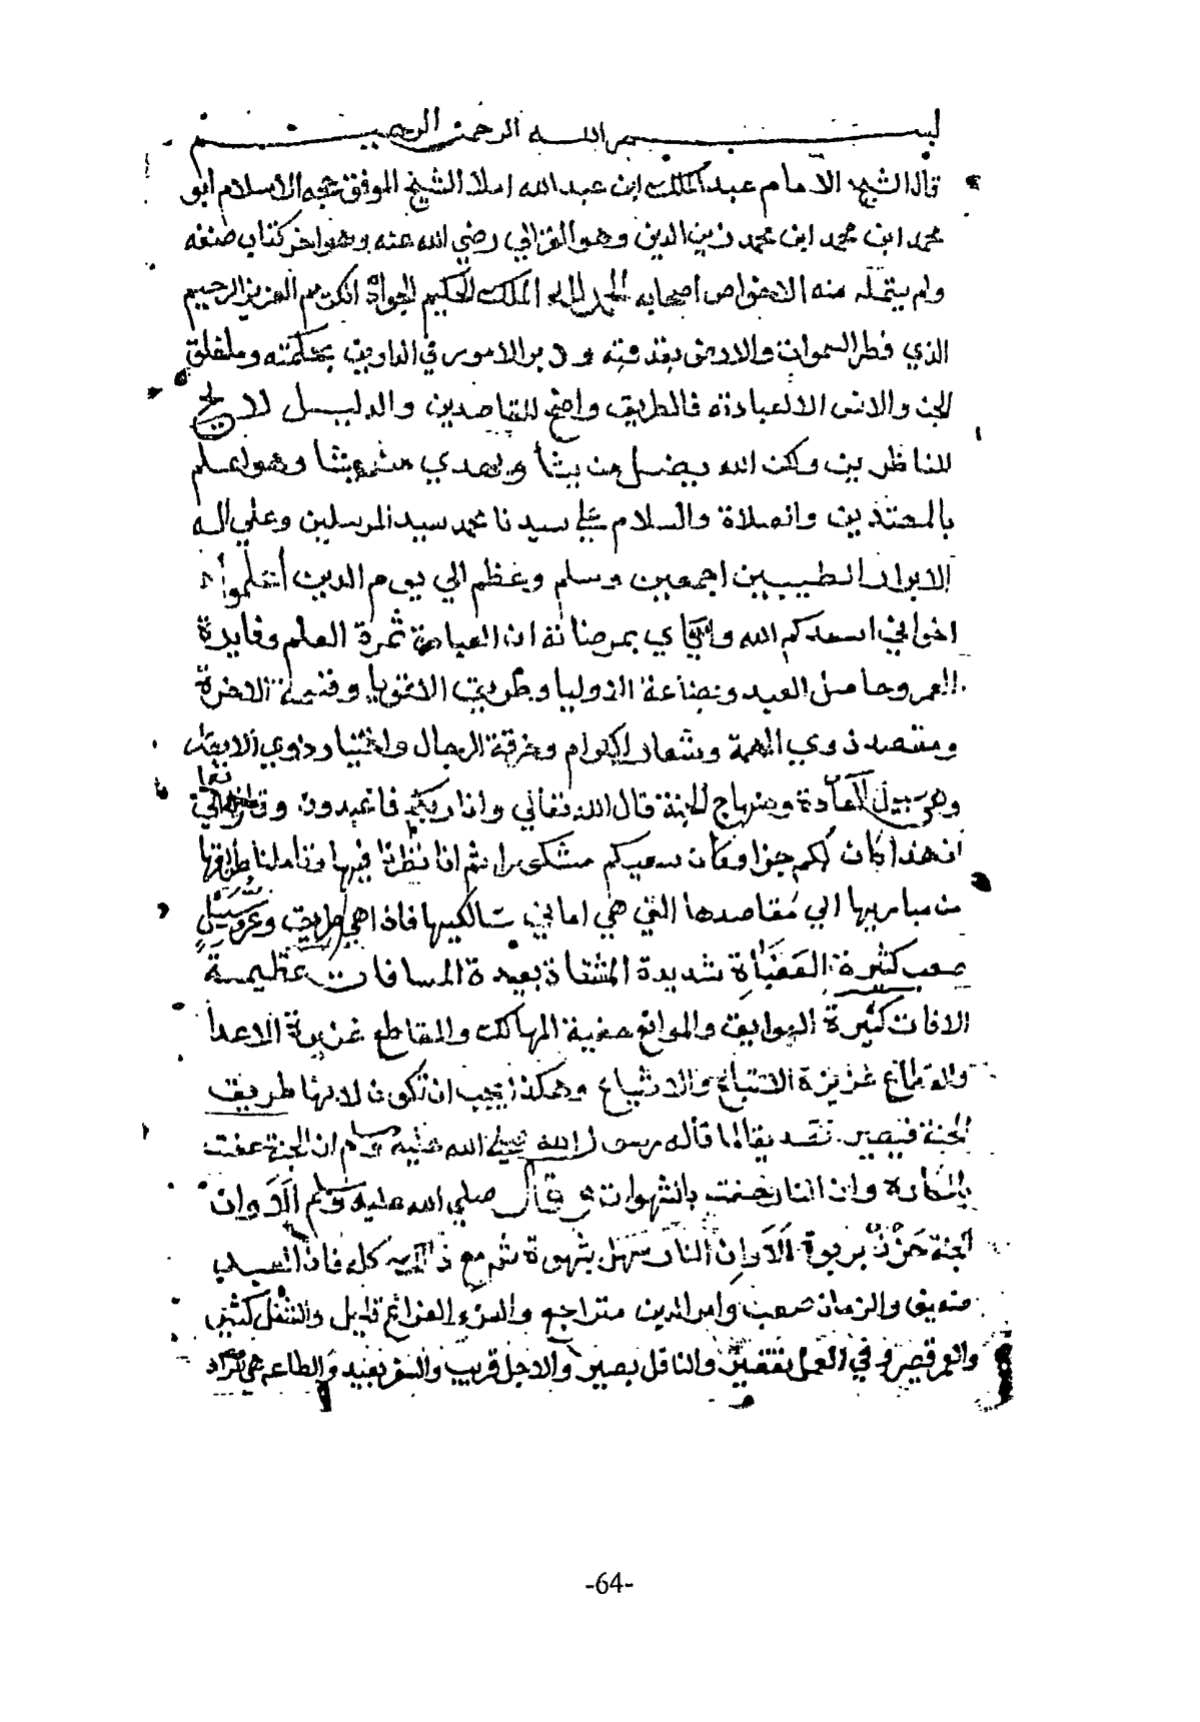 بسم الله الرحمن الرحيم
قال الشيخ الامام عبد الملك ابن عبد الله املا الشيخ الموفق حجة الاسلام ابو
محمد ابن محمد ابن محمد زين الدين وهو الغزالي رضي الله عنه وهو اخر كتاب صنفه
ولم يستمله منه الا خواص اصحابه الحمد لله الملك الحكيم الجواد الكريم العزيز الرحيم
الذي فطر السموات والارض بقدرته ودبر الامور في الدارين بحكمته وما خلق
الجن والانس الا لعبادته فالطريق واضح للقاصدين والدليل لايح
للناظرين ولكن الله يضل من يشا ويهدي من يشا وهو اعلم
بالمهتدين والصلاة والسلام علي سيدنا محمد سيد المرسلين وعلي اله
الابرار الطيبين اجمعين وسلم وعظم الي يوم الدين اعلموا
اخواني اسعدكم الله واياي بمرضاته ان العبادة ثمرة العلم وفايدة
العمر وحاصل العبد وبضاعة الاوليا وطريق الاتقيا وقسمة الاخرة
ومقصد ذوي الهمة وشعار الكرام وحرفة الرجال واختيار ذوي الابصار
وهي سبيل السعادة ومنهاج الجنة قال الله تعالي وانا ربكم فاعبدون وقال تعالي
ان هذا كان لكم جزا وكان سعيكم مشكورا ثم انا نظرنا فيها وتاملنا طريقها
من مباديها الي مقاصدها التي هي اماني سالكيها فاذا هي طريق وعر وسبيل
صعب كثيرة العقبات شديدة المشقات بعيدة المسافات عظيمة
الافات كثيرة العوايق والموانع خفية المهالك والمقاطع غزيرة الاعدا
والقطاع عزيزة الاتباع والاشياع وهكذا يجب ان تكون لانها طريق
الجنة فيصير تصديقا لما قاله رسول الله صلي الله عليه وسلم ان الجنة حفت
بالمكاره وان النار حفت بالشهوات وقال صلي الله عليه وسلم الا وان
الجنة حزن بربوة الا وان النار سهل بشهوة ثم مع ذلك كله فان العبد
ضعيف والزمان صعب وامر الدين متراجع والفراغ قليل والشغل كثير
والعمر قصير وفي العمل تقصير والناقد بصير والاجل قريب والسفر بعيد والطاعة هي الزاد
-64-